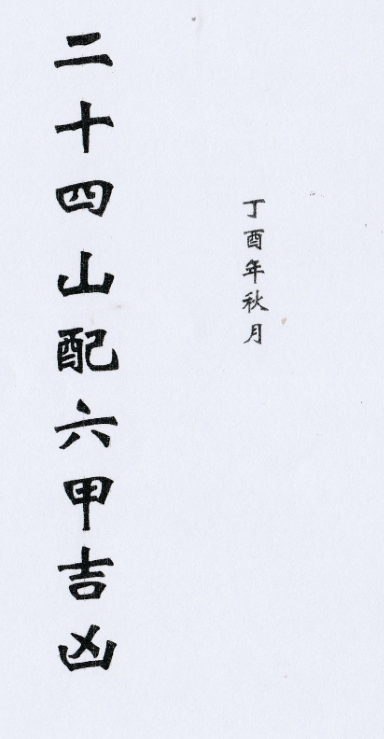 丁酉年秋月
二十四山配六甲吉凶